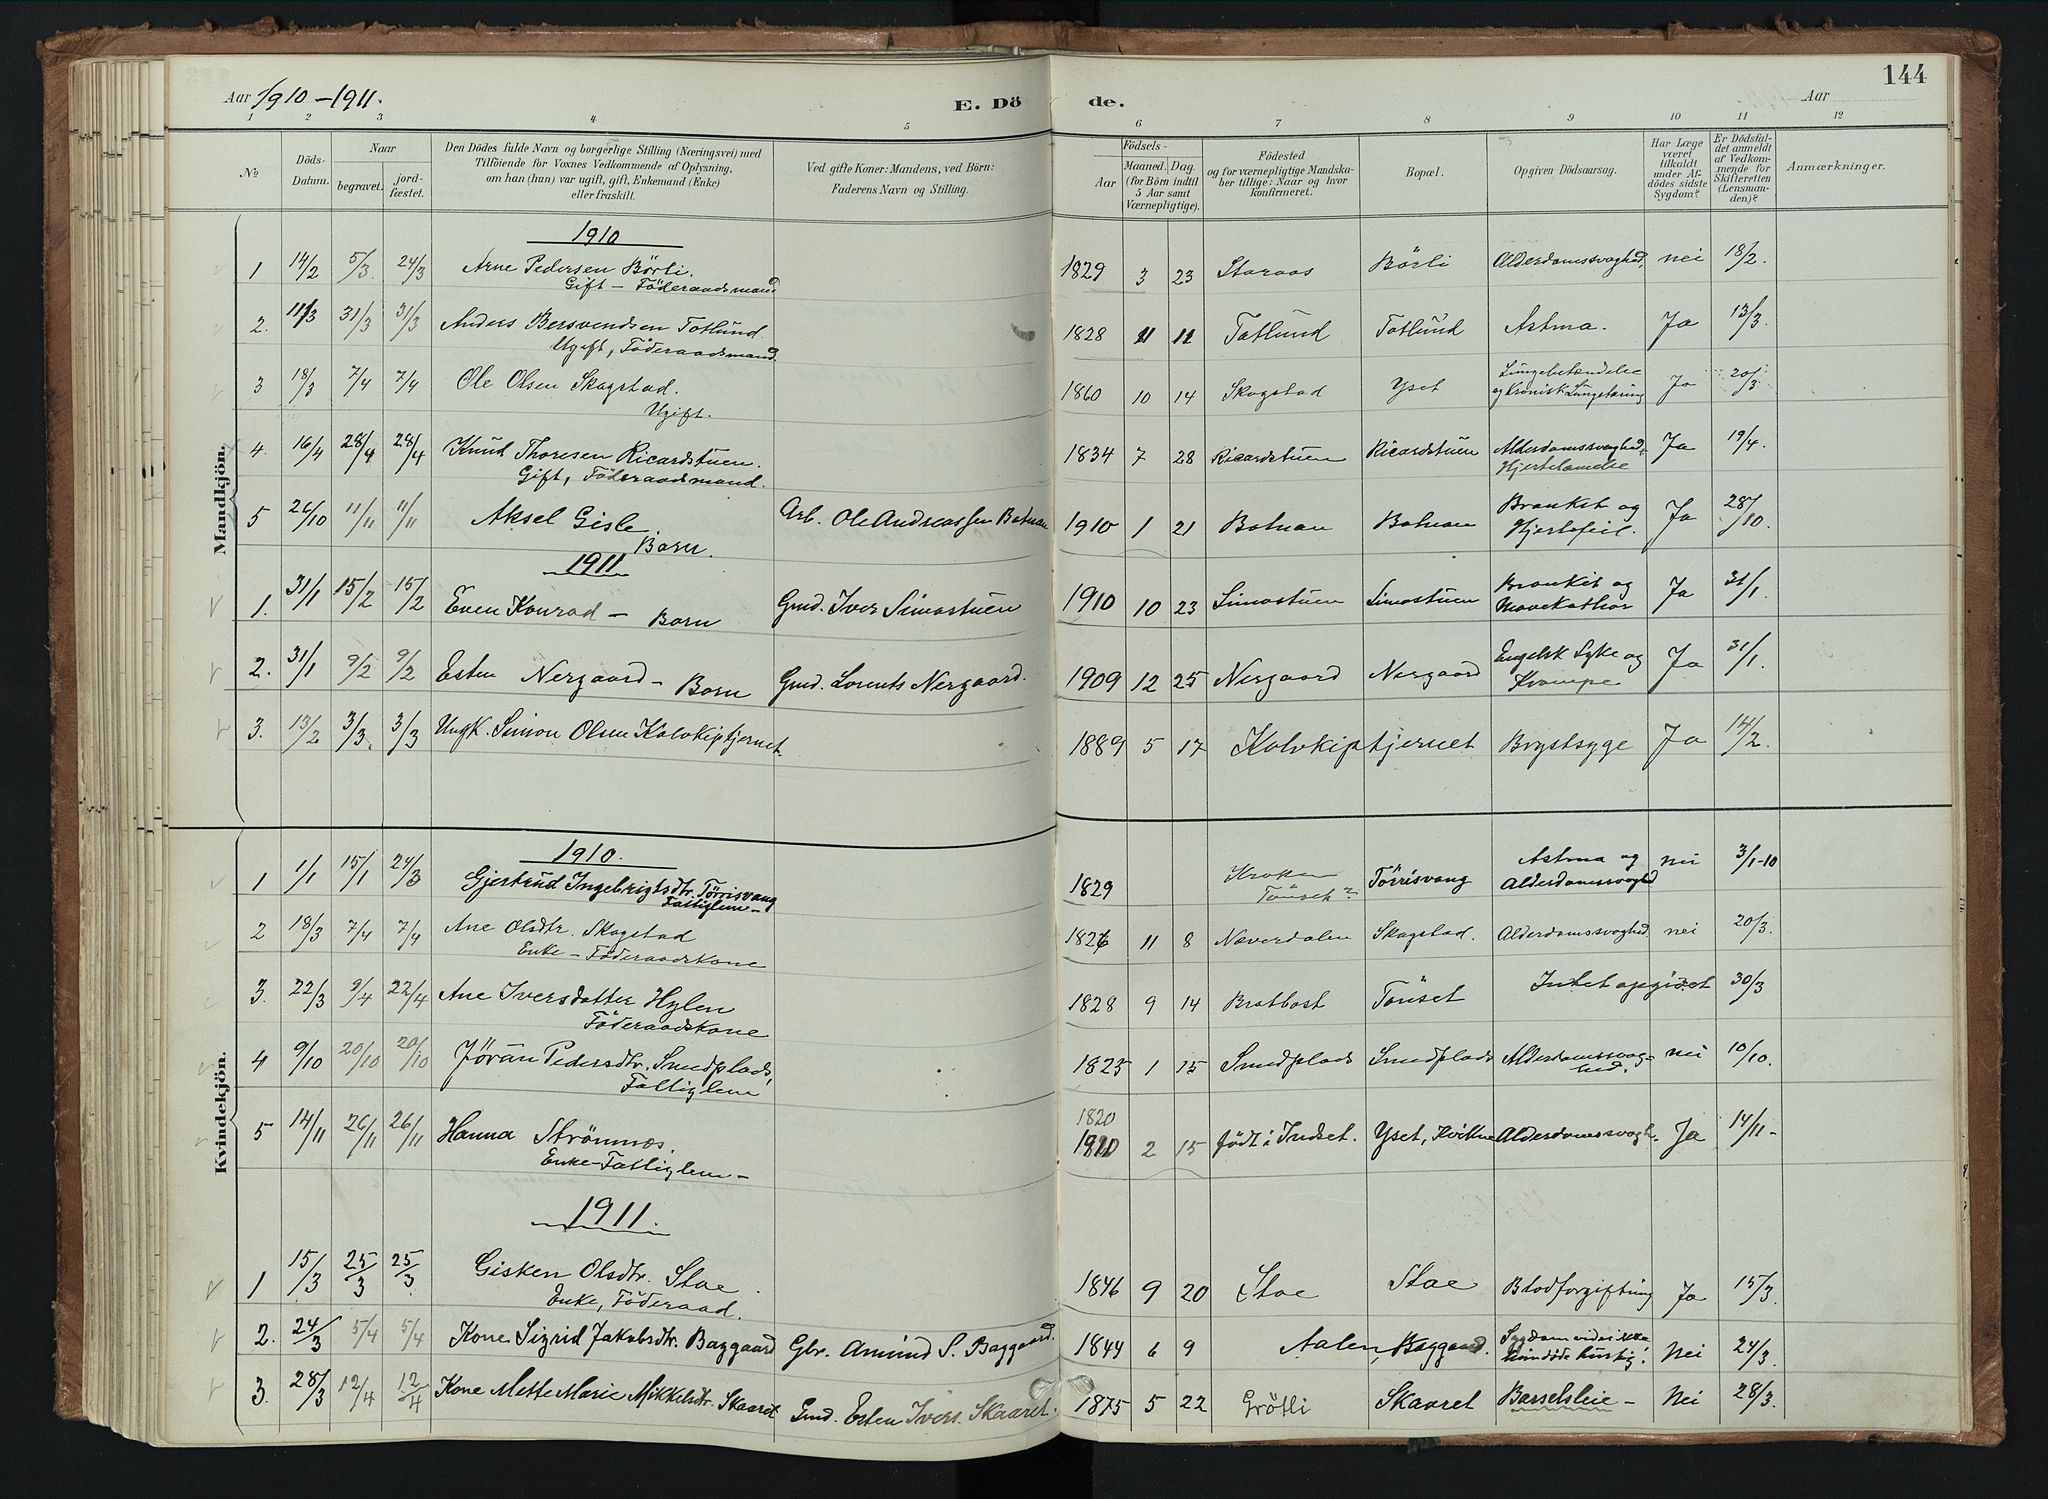 Aar 1910-1911.
E. Dö
de.
Aar
144
1 2 3 4 5 6 7 8 9 10 11 12
No
Döds-Datum.
Naar
begravet.
jord-fæstet.
Den Dödes fulde Navn og borgerlige Stilling (Næringsvei) med
Tilföiende for Voxnes Vedkommende af Oplysning,
om han (hun) var ugift, gift, Enkemand (Enke)
eller fraskilt.
Ved gifte Koner: Mandens, ved Börn:
Faderens Navn og Stilling.
Födsels-
Aar
Maaned. Dag.
(for Börn indtil
5 Aar samt
Værnepligtige).
Födested
og for værnepligtige Mandska-
ber tillige: Naar og hvor
konfirmeret.
Bopæl.
Opgiven Dödsaarsag.
Har Læge
været
tilkaldt
under Af-
dödes sidste
Sygdom?
Er Dödsfal-
det anmeldt
af Vedkom-
mende for
Skifteretten
(Lensman-
den)?
Anmærkninger.
Mandkjön.
1910
1 14/2 5/3. 24/3 Arne Pedersen Börli. 1829 3 23 Staraas Börli Alderdomssvaghed. nei 18/2.
Gift - Föderaadsmand
2. 11/3 31/3 31/3 Anders Bersvendsen Totlund. 1828 11 11 Totlund Totlund Astma. Ja 13/3.
Ugift, Föderaadsmand.
3 18/3 7/4 7/4 Ole Olsen Skogstad. 1860 10 14 Skogstad Yset Lungebetændelse Ja 20/3
Ugift. og Kronisk Lungetæring
4. 16/4 28/4 28/4 Knud Thoresen Ricardstuen. 1834 7 28 Ricardstuen Ricardstuen Alderdomssvaghed Ja 19/4.
Gift, Föderaadsmand. Hjertelamelse
5 26/10 11/11 11/11 Aksel Gisle Arb. Ole Andreassen Botnan 1910 1 21 Botnan Botnan Bronkit og Ja 28/10.
Barn. Hjertefeil.
1911
1. 31/1 15/2 15/2 Even Konrad - Barn Gmd. Iver Simostuen 1910 10 23 Simostuen Simostuen Bronkit og Ja 31/1.
Mavekathar
2. 31/1 9/2 9/2 Esten Nergaard - Barn Gmd. Lorents Nergaard. 1909 12 25 Nergaard Nergaard Engelsk Syke og Ja 31/1.
Krampe
3. 13/2 3/3. 3/3 Ungk. Simon Olsen Kalvkiptjernet 1889 5 17 Kalvkiptjernet Brystsyge Ja 14/2.
Kvindekjön.
1910.
1 1/1 15/1 24/3 Gjertrud Ingebrigtsdtr. Törrisvang 1829 Kroken Törrisvang Astma og nei 3/1-10
Fattiglem - Tönset? Alderdomssvaghed
2 18/3 7/4 7/4 Ane Olsdtr. Skogstad 1826 11 8 Næverdalen Skogstad. Alderdomssvaghed. nei 20/3.
Enke - Föderaadskone
3. 22/3 9/4 22/4 Ane Iversdatter Hylen 1828 9 14 Bratbost Tönset Intet opgivet 30/3
Föderaadskone
4 9/10 20/10 20/10 Jøran Pedersdtr. Smedplads, 1825 1 15 Smedplads Smedplads Alderdomssvag- nei 10/10.
Fattiglem hed.
1820
5 14/11 26/11 26/11 Hanna Strömnæs. 1910 2 15 født i Indset. Yset, Kvikne Alderdomssvagh. Ja 14/11-
Enke-Fattiglem -
1911.
1 15/3 25/3 25/3 Gisken Olsdtr. Stoe. 1846 9 20 Stoe Stoe Blodforgiftning Ja 15/3.
Enke, Föderaad.
2. 24/3 5/4 5/4 Kone Sigrid Jakobsdtr. Baggaard Gbr. Amund S. Baggaard. 1844 6 9 Aalen, Baggaard. Sygdom vides ikke Nei 24/3.
hun døde hurtig!
3. 28/3 12/4 12/4 Kone Mette Marie Mikkelsdtr. Skaaret Gmd. Esten Ivers. Skaaret. 1875 5 22 Grötli Skaaret Barselsleie - Nei 28/3.